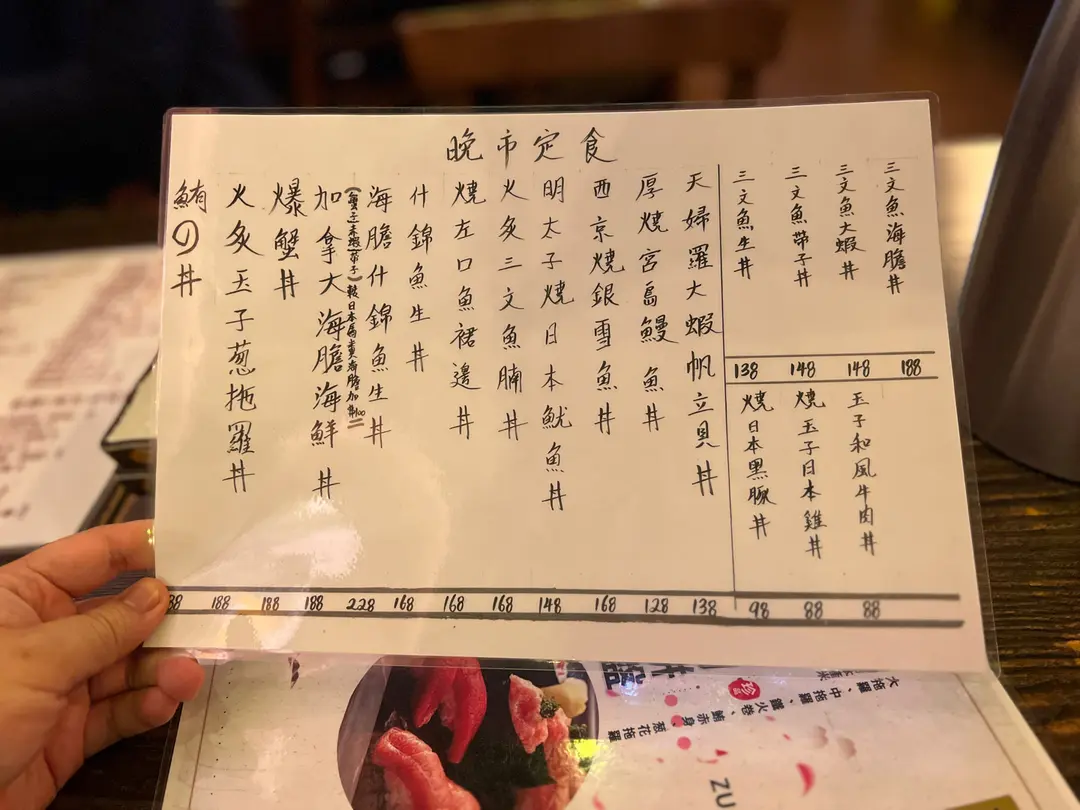 晚市定食
三文魚海膽丼
188
三文魚大蝦丼
148
三文魚帶子丼
148
三文魚生丼
138
玉子和風牛肉丼
88
燒玉子日本雞丼
88
燒日本黑豚丼
98
天婦羅大蝦帆立貝丼
138
厚燒宮島鰻魚丼
128
西京燒銀雪魚丼
168
明太子燒日本魷魚丼
148
火炙三文魚腩丼
168
燒左口魚裙邊丼
168
什錦魚生丼
168
海膽什錦魚生丼
228
加拿大海膽海鮮丼
188
爆蟹丼
188
火炙玉子葱拖羅丼
188
鮪の丼
大拖羅、中拖羅、鐵火卷、鮪赤身、葱花拖羅
珍
ZU